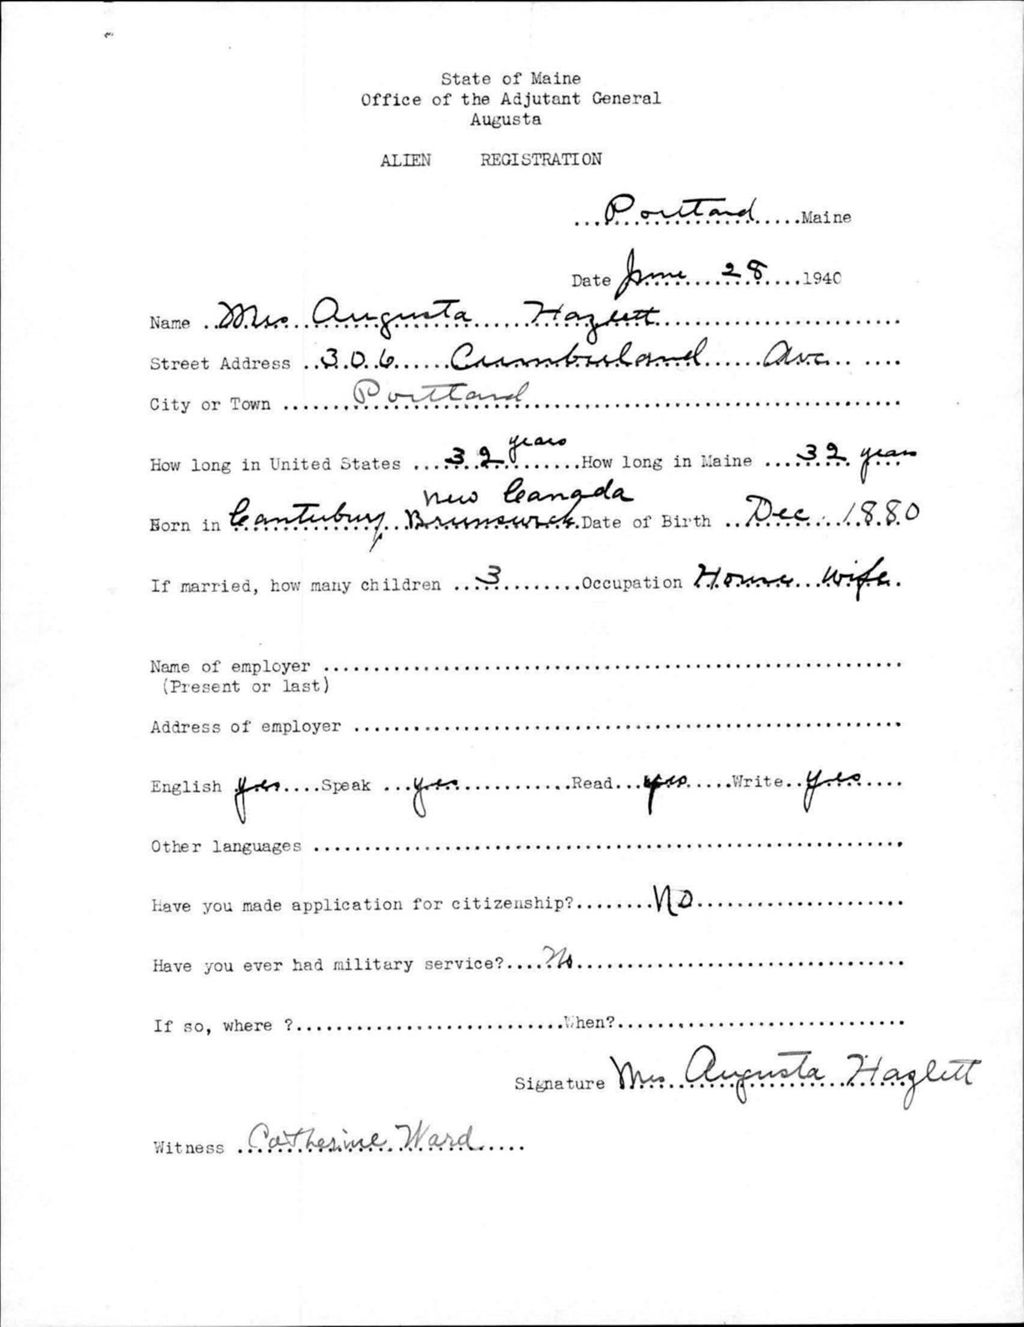 State of Maine
Office of the Adjutant General
Augusta
ALIEN REGISTRATION
...Portland.....Maine
Date June 28....1940
Name ..Mrs. Augusta Hazlett
Street Address ..306 Cumberland Ave
City or Town ......Portland
years
How long in United States ...32.......How long in Maine ...32 years
New Canada
Born in Cantubury Brunswick.Date of Birth ..Dec. 1880
If married, how many children ..3.........Occupation House wife.
Name of employer ..........
(Present or last)
Address of employer ..........
English yes....Speak ...yes...........Read...yes.....Write..yes....
Other languages ..........
Have you made application for citizenship?........No..........
Have you ever had military service?....No..........
If so, where ?..........When?..........
Signature Mrs. Augusta Hazlett
Witness .Catherine Ward.....